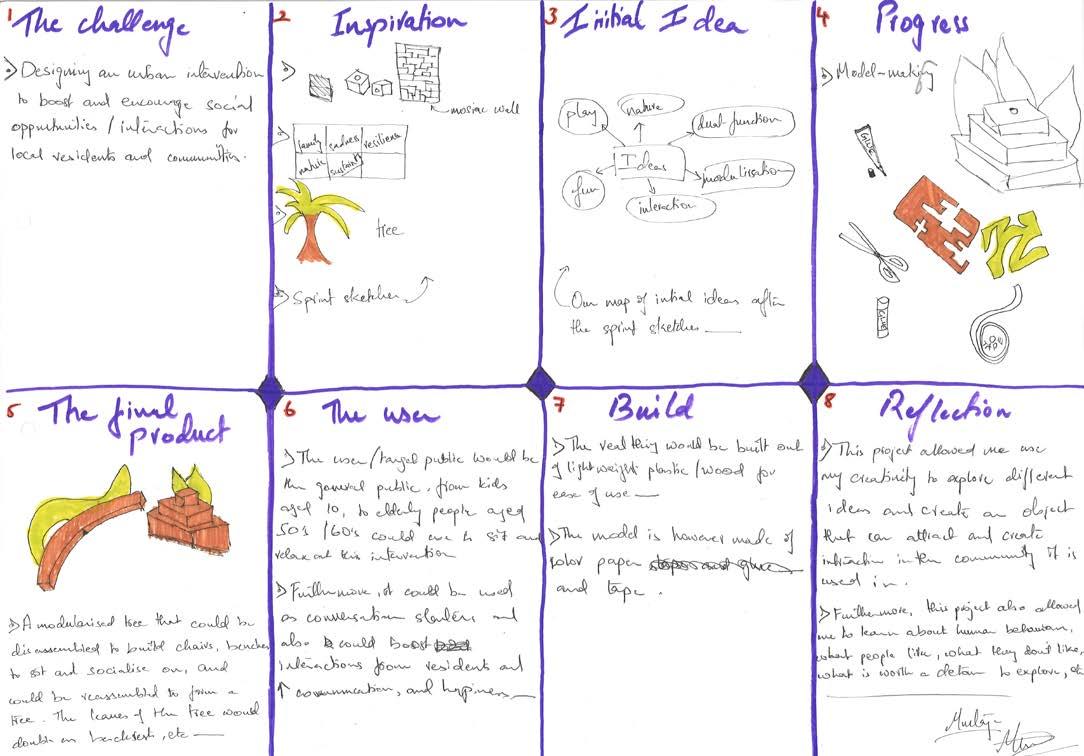 1 The challenge
Designing an urban intervention
to boost and encourage social
opportunities / interactions for
local residents and communities.
2 Inspiration
mosiac wall
family sadness resilience
nature
tree
Sprint sketches
3 Initial Idea
play
nature
dual-function
Ideas
modulisation
fun
interaction
Our map of initial ideas after
the sprint sketches
4 Progress
Model-making
GLUE
GLUE
5 The final
product
A modularised tree that could be
disassembled to build chairs, benches
to sit and socialise on, and
could be reassembled to form a
tree. The leaves of the tree would
double as backrests, etc
6 The user
The user/target public would be
the general public, from kids
aged 10, to elderly people aged
50s / 60s could come to sit and
relax at this intervention
Furthermore, it could be used
as conversation starters and
also could boost
interactions from residents and
↑ communication, and happiness
7 Build
The real thing would be built out
of lightweight plastic/wood for
ease of use
The model is however made of
color paper
and tape.
8 Reflection
This project allowed me use
my creativity to explore different
ideas and create an object
that can attract and create
interaction in the community it is
used in.
Furthermore, this project also allowed
me to learn about human behaviour,
what people like, what they don't like,
what is worth a detour to explore, etc